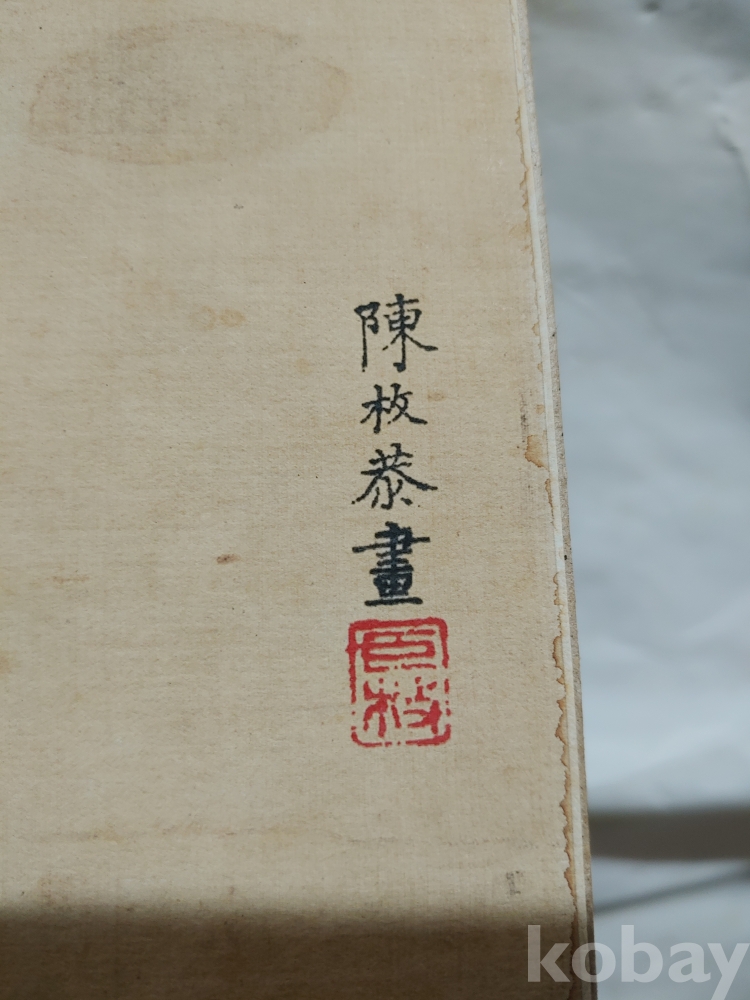 陳枚恭畫
臣枚
kobay